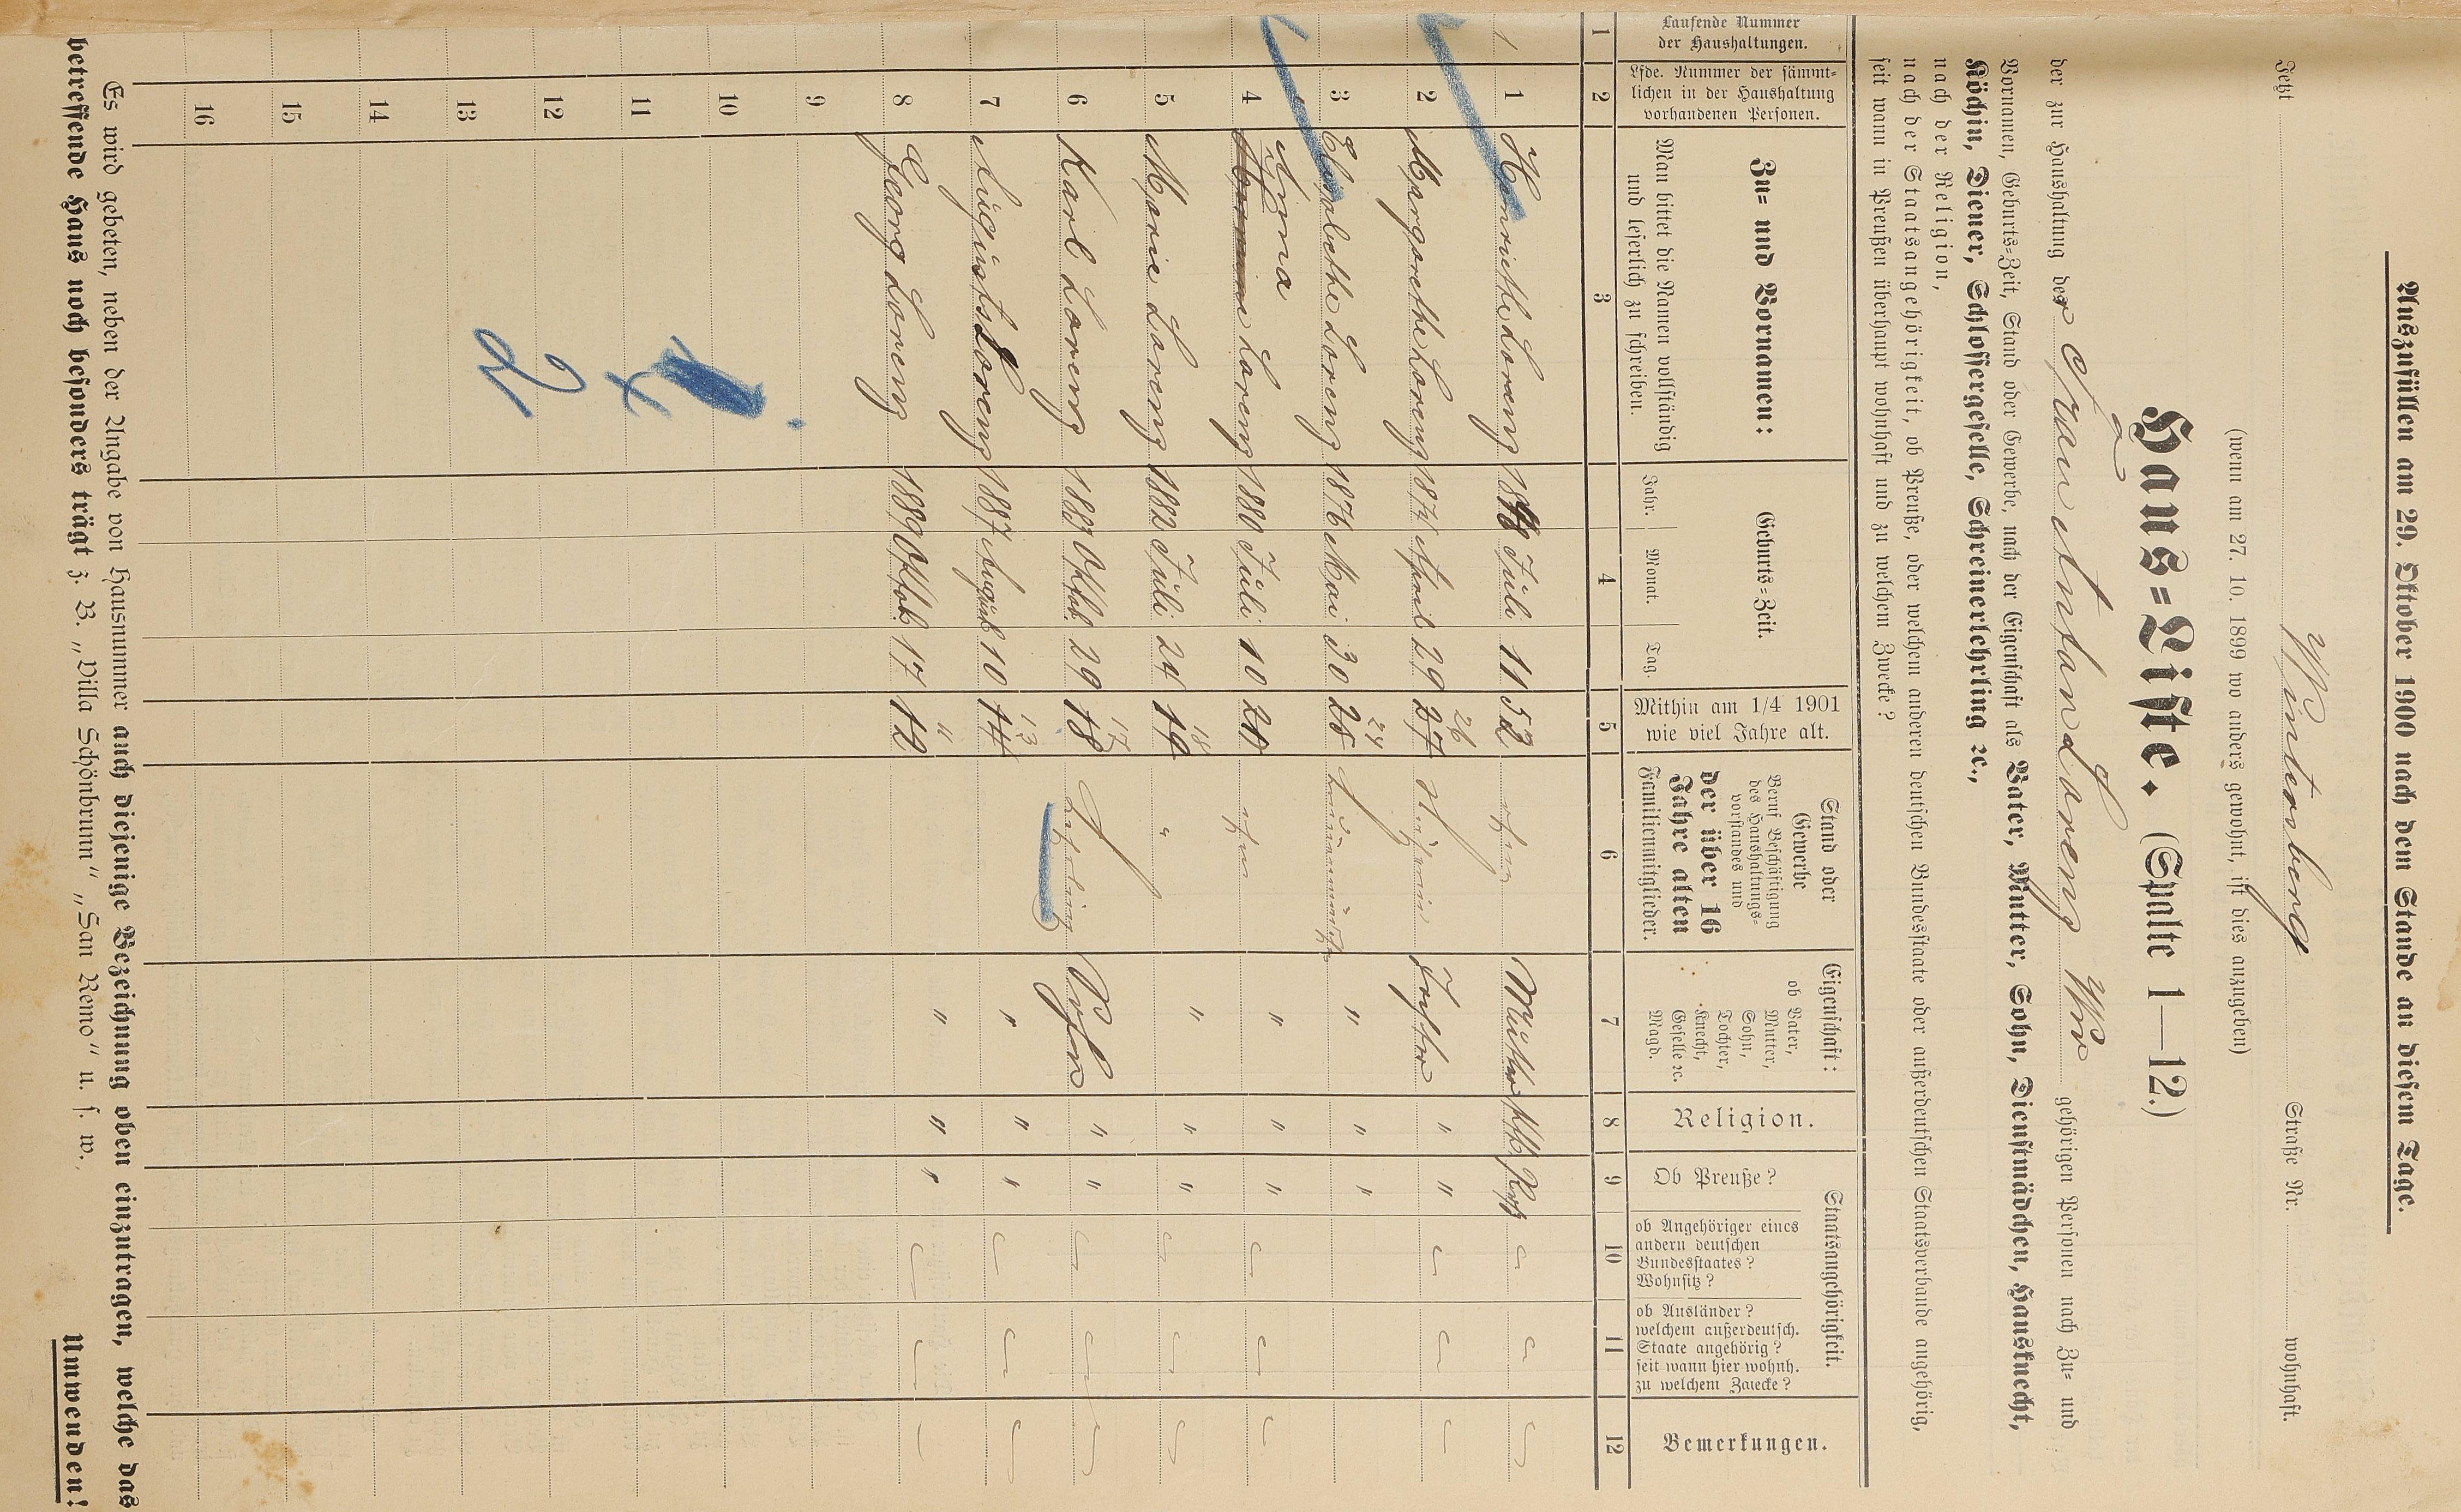 Auszufüllen am 29. Oktober 1900 nach dem Stande an diesem Tage.
Jetzt Winterberg Straße Nr. wohnhaft.
(wenn am 27. 10. 1899 wo anders gewohnt, ist dies anzugeben)
Haus=Liste. (Spalte 1—12.)
der zur Haushaltung der Frau Anton Lorenz Ww gehörigen Personen nach Zu= und
Vornamen, Geburts=Zeit, Stand oder Gewerbe, nach der Eigenschaft als Vater, Mutter, Sohn, Dienstmädchen, Hausknecht,
Köchin, Diener, Schlossergeselle, Schreinerlehrling ꝛc.,
nach der Religion,
nach der Staatsangehörigkeit, ob Preuße, oder welchem anderen deutschen Bundesstaate oder außerdeutschen Staatsverbande angehörig,
seit wann in Preußen überhaupt wohnhaft und zu welchem Zwecke?
Laufende Nummer
der Haushaltungen.
Lfde. Nummer der sämmt=
lichen in der Haushaltung
vorhandenen Personen.
Zu= und Vornamen:
Man bittet die Namen vollständig
und leserlich zu schreiben.
Geburts=Zeit.
Jahr. Monat. Tag.
Mithin am 1/4 1901
wie viel Jahre alt.
Stand oder
Gewerbe
Beruf Beschäftigung
des Haushaltungs=
vorstandes und
der über 16
Jahre alten
Familienmitglieder.
Eigenschaft:
ob Vater,
Mutter,
Sohn,
Tochter,
Knecht,
Geselle ꝛc.
Magd.
Religion.
Staatsangehörigkeit.
Ob Preuße?
ob Angehöriger eines
andern deutschen
Bundesstaates?
Wohnsitz?
ob Ausländer?
welchem außerdeutsch.
Staate angehörig?
seit wann hier wohnh.
zu welchem Zwecke?
Bemerkungen.
1 2 3 4 5 6 7 8 9 10 11 12
1 1 Henriette Lorenz Juli 11 52 ohne Mutter kath.
2 Margarethe Lorenz 1874 April 29 27 26 Tochter "
3 Elisabethe Lorenz 1876 Mai 30 25 24 " " "
4 Anna Lorenz 1880 Juli 10 20 ohne " " "
5 Marie Lorenz 1882 Juli 24 19 18 " " " "
6 Karl Lorenz 1883 Oktob. 29 18 17 Lehrling Sohn " "
7 August Lorenz 1887 August 10 14 13 " " "
8 Georg Lorenz 1889 Oktob. 17 12 11 " " "
9
10
11
12
13
14
15
16
2
Es wird gebeten, neben der Angabe von Hausnummer auch diejenige Bezeichnung oben einzutragen, welche das
betreffende Haus noch besonders trägt z. B. „Villa Schönbrunn" „San Remo" u. s. w.,
Umwenden!